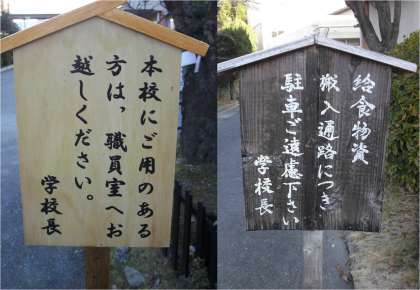 本校にご用のある
方は、職員室へお
越しください。
学校長
給食物資
搬入通路につき
駐車ご遠慮下さい
学校長